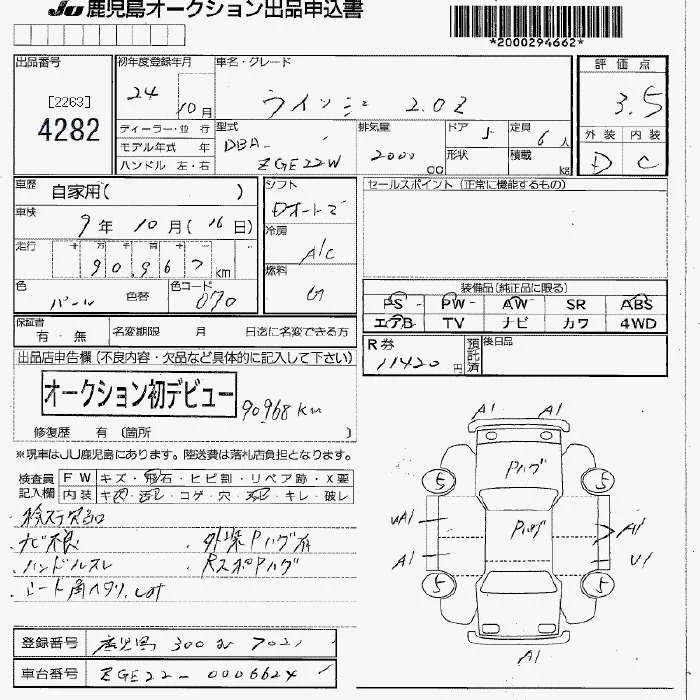 JU 鹿児島オークション出品申込書
*2000294662*
出品番号
[2263]
4282
初年度登録年月
24
10月
ディーラー・並 行
モデル年式 年
ハンドル 左・右
車名・グレード
ウイッシュ 2.0Z
型式
DBA-
ZGE22W
排気量
2000
cc
ドア 5
形状
定員 6人
積載 kg
評価点
3.5
外装 内装
D C
車歴 自家用( )
車検 9年 10月(16日)
走行 十 万 千 百 十
90967 km
色 パール 色替
色コード 070
シフト
Dオートマ
冷房
A/C
燃料
G
セールスポイント (正常に機能するもの)
装備品(純正品に限る)
PS PW AW SR ABS
エアB TV ナビ カワ 4WD
保証書 有・無
名変期限 月 日迄に名変できる方
R券 11420円
預託済
後日品
出品店申告欄 (不良内容・欠品など具体的に記入して下さい)
オークション初デビュー
90968 km
修復歴 有 (箇所 )
※現車はJU鹿児島にあります。陸送費は落札店負担となります。
検査員記入欄
FW キズ・飛石・ヒビ割・リペア跡・X要
内装 キズ・汚レ・コゲ・穴・スレ・キレ・破レ
ナビ不良
外装Pハゲ有
ハンドルスレ
RスポPハゲ
A1 A1
Pハゲ
5 5
Pハゲ
A1
A1
U1
5 5
A1
登録番号 鹿児島 300
車台番号 ZGE22-0006624